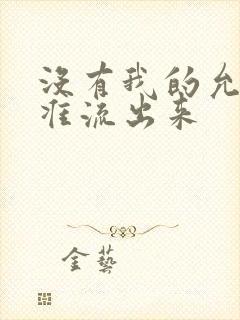 没有我的允
准流出来
金藝